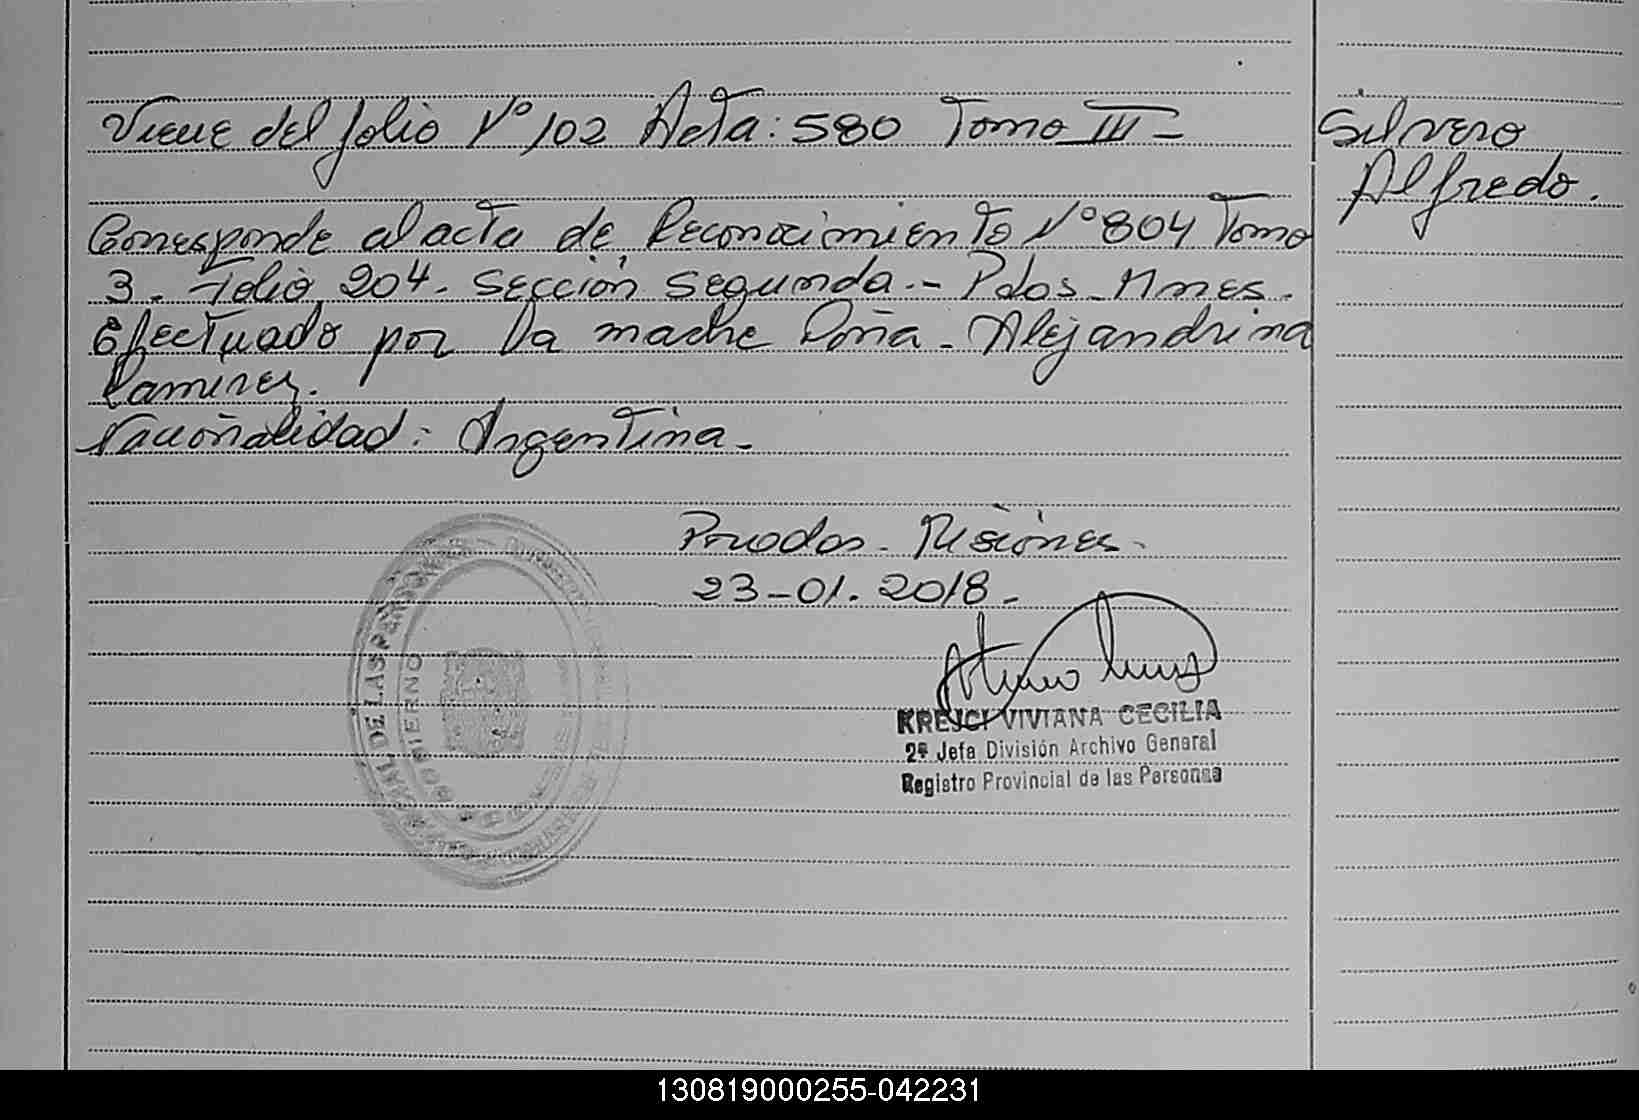 Viene del folio Nº 102 Acta: 580 Tomo III -
Silvero
Alfredo.
Corresponde al acta de Reconocimiento Nº 804 Tomo
3. Folio 204. Sección Segunda.- Pdos - Mnes.
Efectuado por la madre Doña - Alejandrina
Ramirez.
Nacionalidad: Argentina -
Posadas - Misiones -
23-01.2018 -
KREJCI VIVIANA CECILIA
2ª Jefa División Archivo General
Registro Provincial de las Personas
DE LAS
GOBIERNO
130819000255-042231